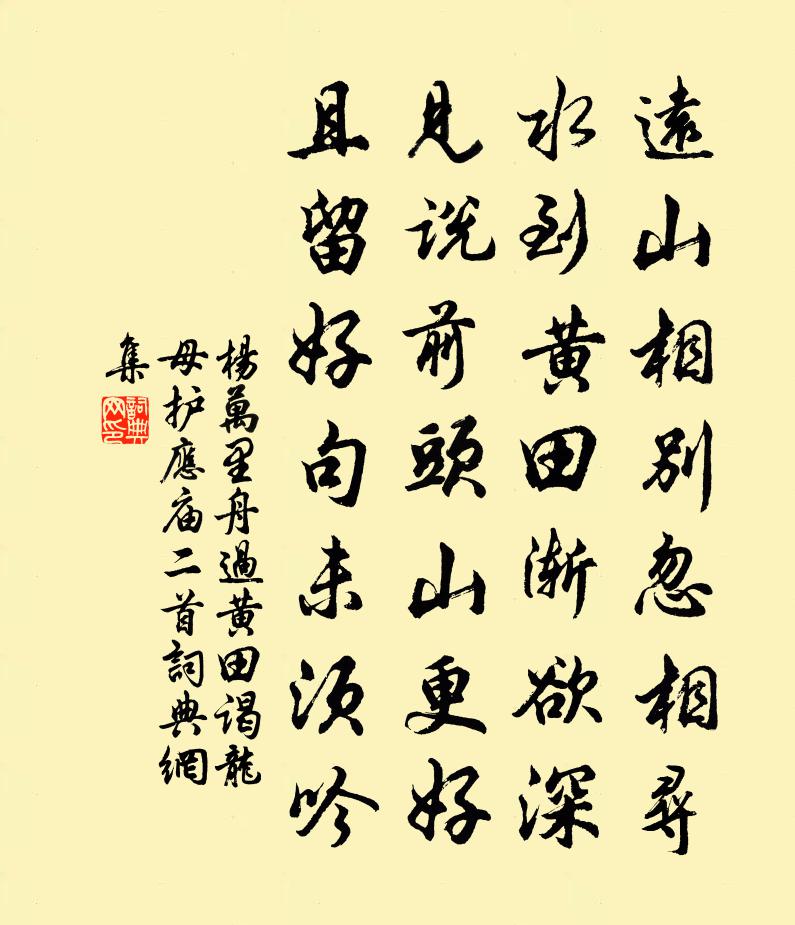 遠山相別忽相尋
水到黄田渐欲深
見説前頭山更好
且留好句未須吟
楊萬里舟過黄田謁龍
母护應庙二首詞典網
集
詞典
网印